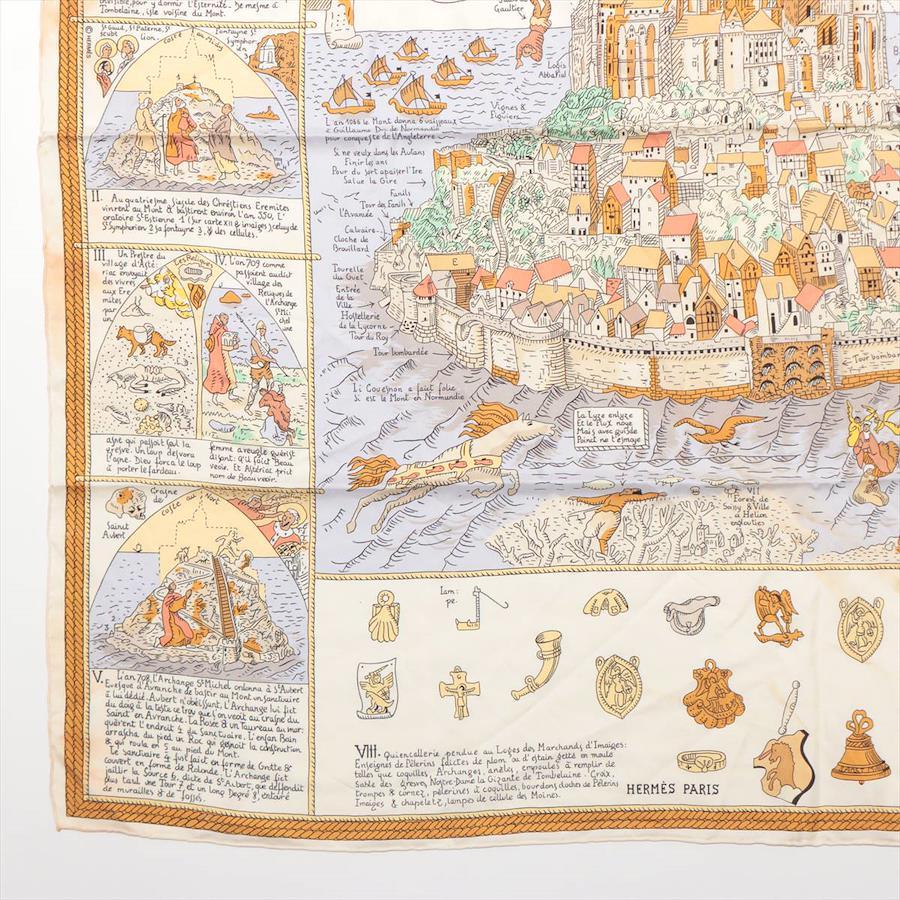 invisible, pour y dormir l'Esternité. De mesme à
Tombelaine, isle voisine du Mont.
© HERMÈS
St Gaud, St Paterne, St
scubi
lion
coste au Midy
Fontayne St
Symphor
ien
II. Au quatriesme siecle des Chrêstiens Eremites
vinrent au Mont & bastirent environ l'an, 550, l'
oratoire St Estienne 1 (sur carte XII & images) celuy de
St Symphorien 2 sa fontayne 3, & des cellules.
III. Un Prestre du
village d'Asté
riac envoyait
des vivres
aux Ere
mites
par
un
asne qui passoit seul la
gresve. Un loup desvora
l'asne. Dieu força le loup
à porter le fardeau.
IV. L'an 709 comme
passoient audict
village des
Reliques de
l'Archange
St Mi
chel
une
femme aveugle guérist
disant: qu'il fait Beau
veoir. Et Astériac prist
nom de Beauveoir.
Crasne
de
Sainct
Aubert
coste au Nort
V. L'an 708, l'Archange St Michel ordonna à St Aubert
Evesque d'Avranche de bastir au Mont un sanctuaire
à lui dédié. Aubert n'obéissant, l'Archange lui fist
du doig à la teste ce trou que on veoit au crasne du
Sainct en Avranche. La Rosée & un Taureau au mar:
quèrent l'endroit 4 du Sanctuaire. L'enfan Bain
arrascha du pied un Roc qui gesnoit la construction
& qui roula en 5 au pied du Mont.
Le sanctuaire 4 fist fait en forme de Grotte &
couvert en forme de Rotonde. L'Archange fist
jaillir la Source 6, dicte de St Aubert, que deffendit
plus tard une Tour 7 et un long Degré 8, entouré
de murailles & de fossés.
Gaultier
Logis
Abbatial
Vignes &
Figuiers
L'an 1066 le Mont donna 6 vaisseaux
à Guillaume Duc de Normandie
pour conqueste de l'Angleterre
Si ne veulx dans les Autans
Finir tes ans
Pour du sort apaiser l'Ire
Salue la Gire
Fanils
Tour des Fanils
l'Avancée
Calvaire
Cloche de
Brouillard
Tourelle
du Guet
Entrée
de la
Ville
Hostellerie
de la Lycorne
Tour du Roy
Tour bombardée
E
Tour bombar
Li Couesnon a faict folie
Si est le Mont en Normandie
La Lyze enlyze
Et le Flux noye
Mais avec guyde
Point ne t'esmoye
VII
Forest de
Scissy & Ville
d'Hélion
englouties
Lam:
pe.
VIII. Quincaillerie pendue au Loges des Marchands d'Images:
Enseignes de Pèlerins faictes de plom ou d'estain jetté en moule
telles que coquilles, Archanges, anèles, empoules à remplir de
Sable des Gresves, Notre-Dame la Gizante de Tombelaine. Croix,
trompes & cornez, pelerines à coquilles, bourdons, cloches de Pèlerins
Images & chapeletz, lampes de cellule des Moines.
HERMÈS PARIS